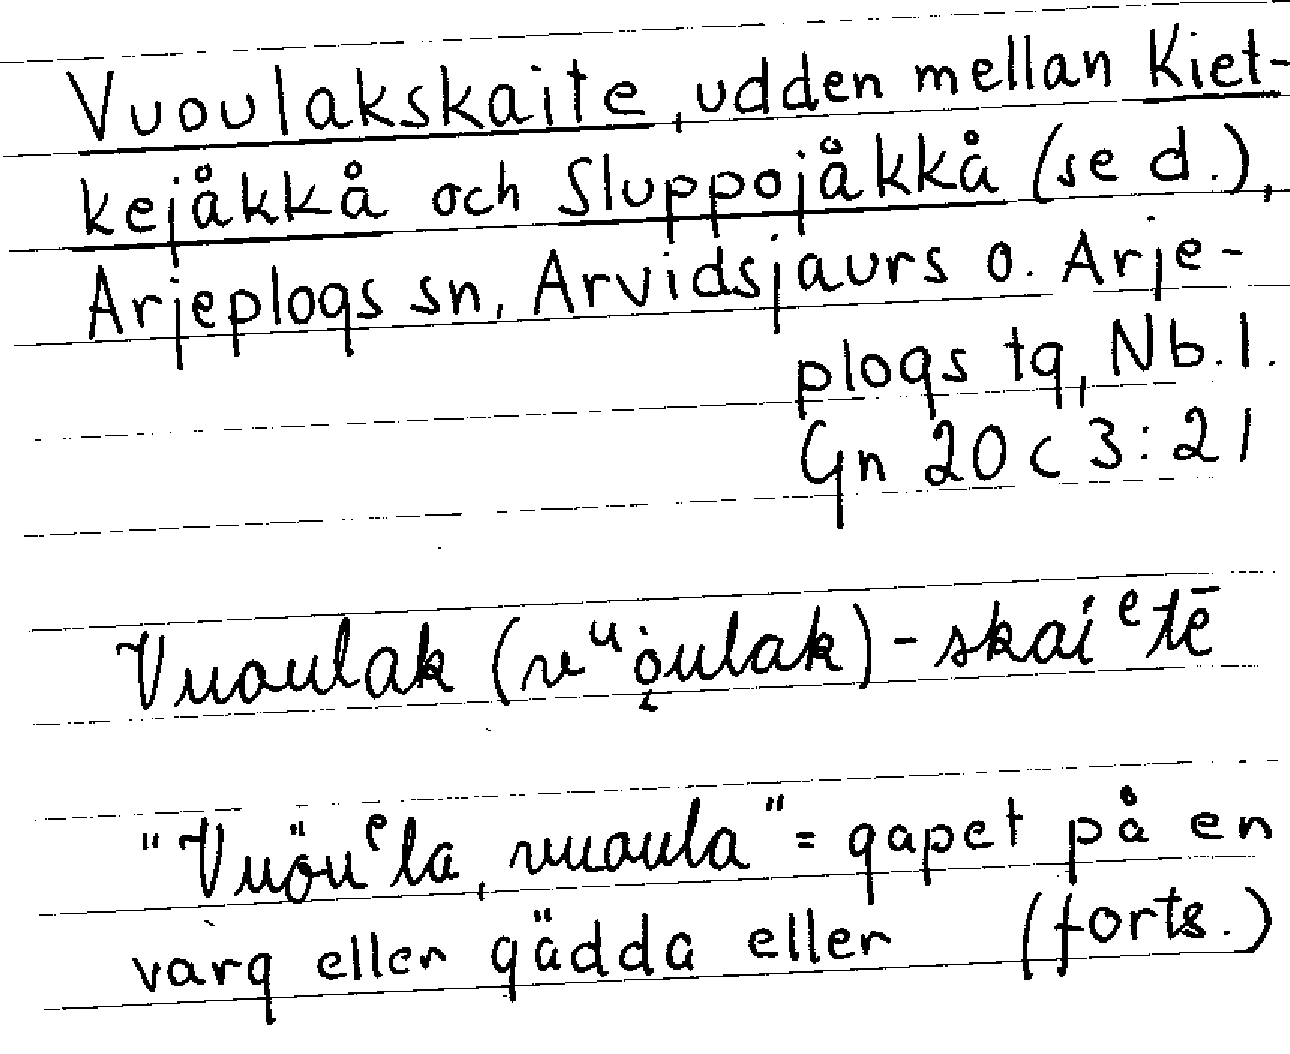 Vuoulakskaite, udden mellan Kiet-
kejåkkå och Sluppojåkkå (se d.),
Arjeplogs sn, Arvidsjaurs o. Arje-
plogs tg, Nb. l.
Gn 20 c 3:21
Vuoulak (vᵘǫ̇ulak)-skaiᵉtē
"Vuöuᵉla, vuoula" = gapet på en
varg eller gädda eller (forts.)